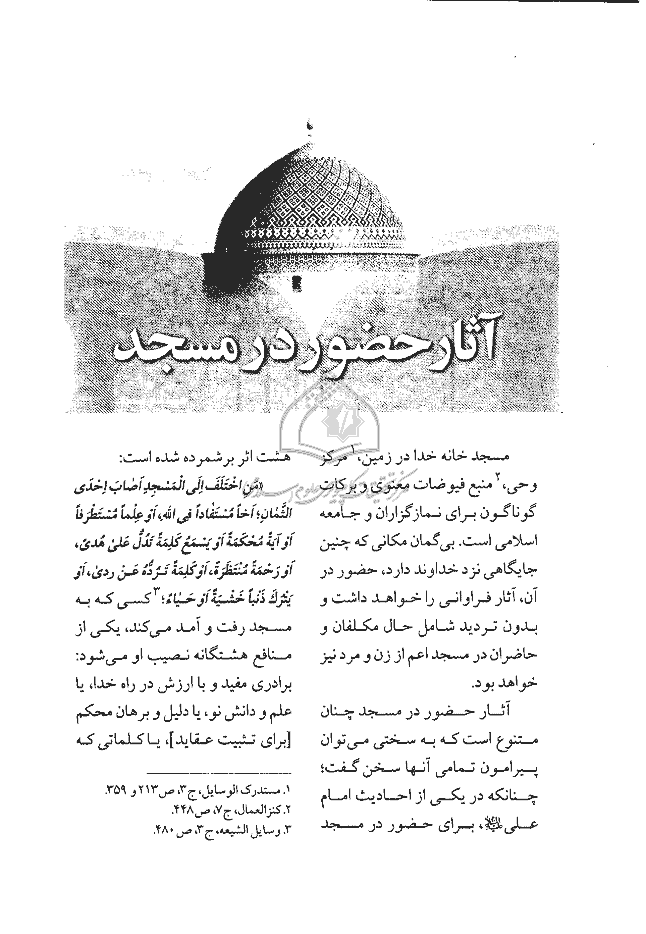 آثار حضور در مسجد
مسجد خانه خدا در زمین،۱ مرکز
وحی،۲ منبع فیوضات معنوی و برکات
گوناگون برای نمازگزاران و جامعه
اسلامی است. بی‌گمان مکانی که چنین
جایگاهی نزد خداوند دارد، حضور در
آن، آثار فراوانی را خواهد داشت و
بدون تردید شامل حال مکلفان و
حاضران در مسجد اعم از زن و مرد نیز
خواهد بود.
آثار حضور در مسجد چنان
متنوع است که به سختی می‌توان
پیرامون تمامی آنها سخن گفت؛
چنانکه در یکی از احادیث امام
علی، برای حضور در مسجد
هشت اثر برشمرده شده است:
«مَنِ اخْتَلَفَ اِلَی الْمَسْجِدِ اَصَابَ اِحْدَی
الثَّمَانِ؛ اَخاً مُسْتَفَاداً فِی اللهِ، اَوْ عِلْماً مُسْتَطْرَفاً
اَوْ آیَةً مُحْکَمَةً اَوْ یَسْمَعُ کَلِمَةً تَدُلُّ عَلیٰ هُدیً،
اَوْ رَحْمَةً مُنْتَظَرَةً، اَوْ کَلِمَةً تَرُدُّهُ عَنْ رَدیً، اَوْ
یَتْرُكُ ذَنْباً خَشْیَةً اَوْ حَیَاءً؛۳ کسی که به
مسجد رفت و آمد می‌کند، یکی از
منافع هشتگانه نصیب او می‌شود:
برادری مفید و با ارزش در راه خدا، یا
علم و دانش نو، یا دلیل و برهان محکم
[برای تثبیت عقاید]، یا کلماتی که
۱. مستدرک الوسایل، ج۳، ص۲۱۳ و ۳۵۹.
۲. کنزالعمال، ج۷، ص۴۴۸.
۳. وسایل الشیعه، ج۳، ص۴۸۰.